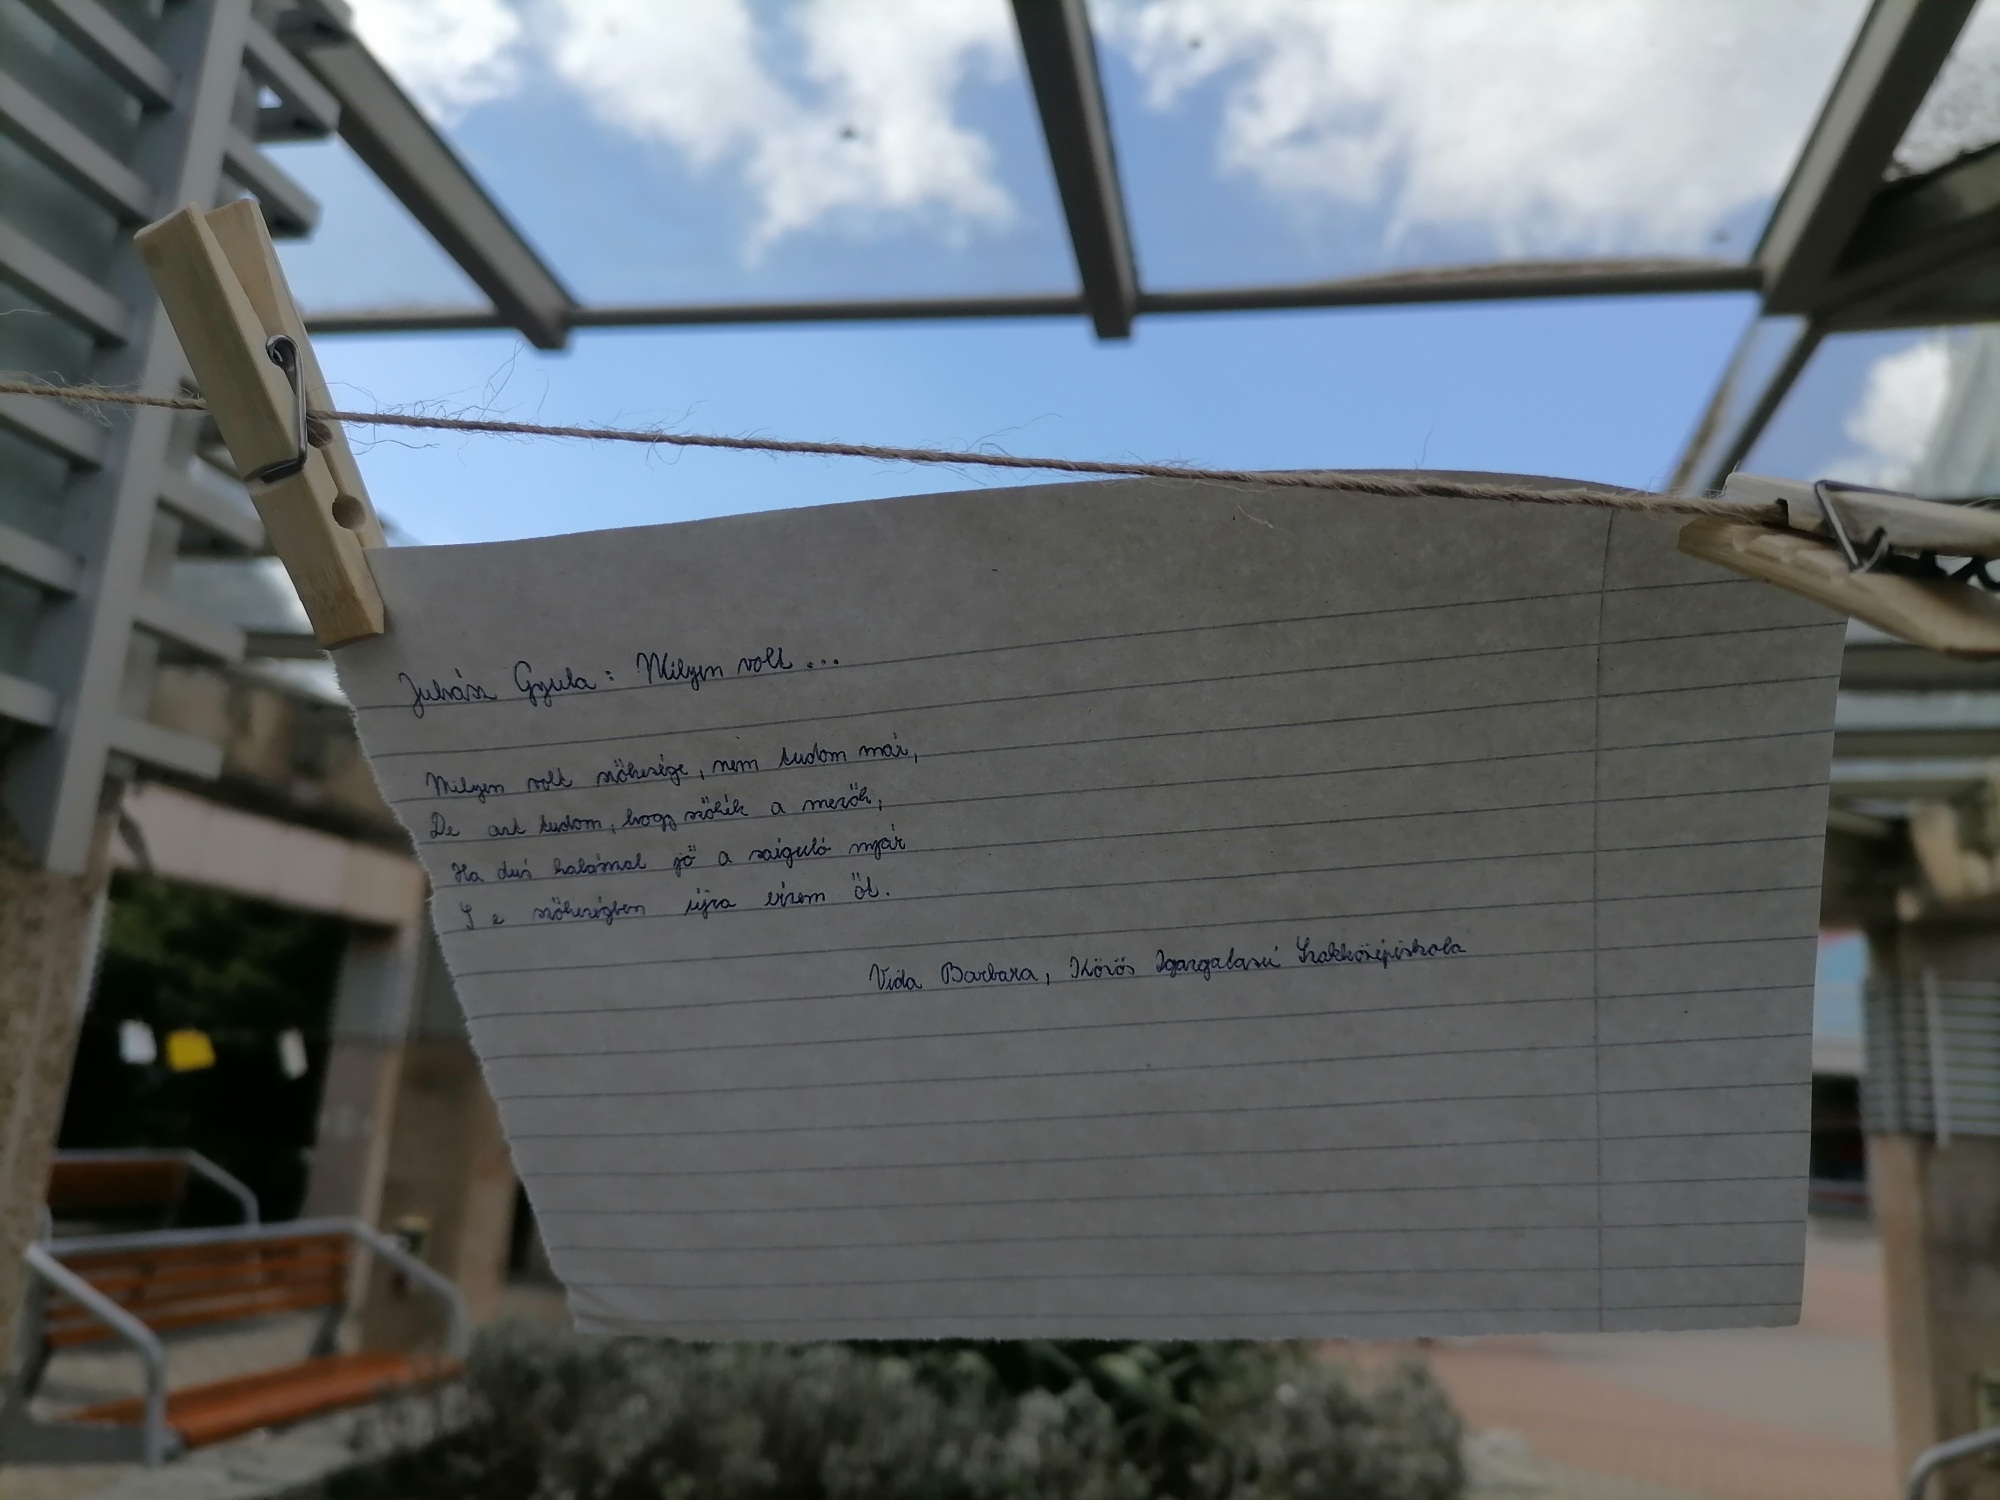 Juhász Gyula: Milyen volt...
Milyen volt szőkesége, nem tudom már,
De azt tudom, hogy szőkék a mezők,
Ha dús kalásszal jő a sárguló nyár
S e szőkeségben újra érzem őt.
Vida Barbara, Körös Igazgatású Szakközépiskola